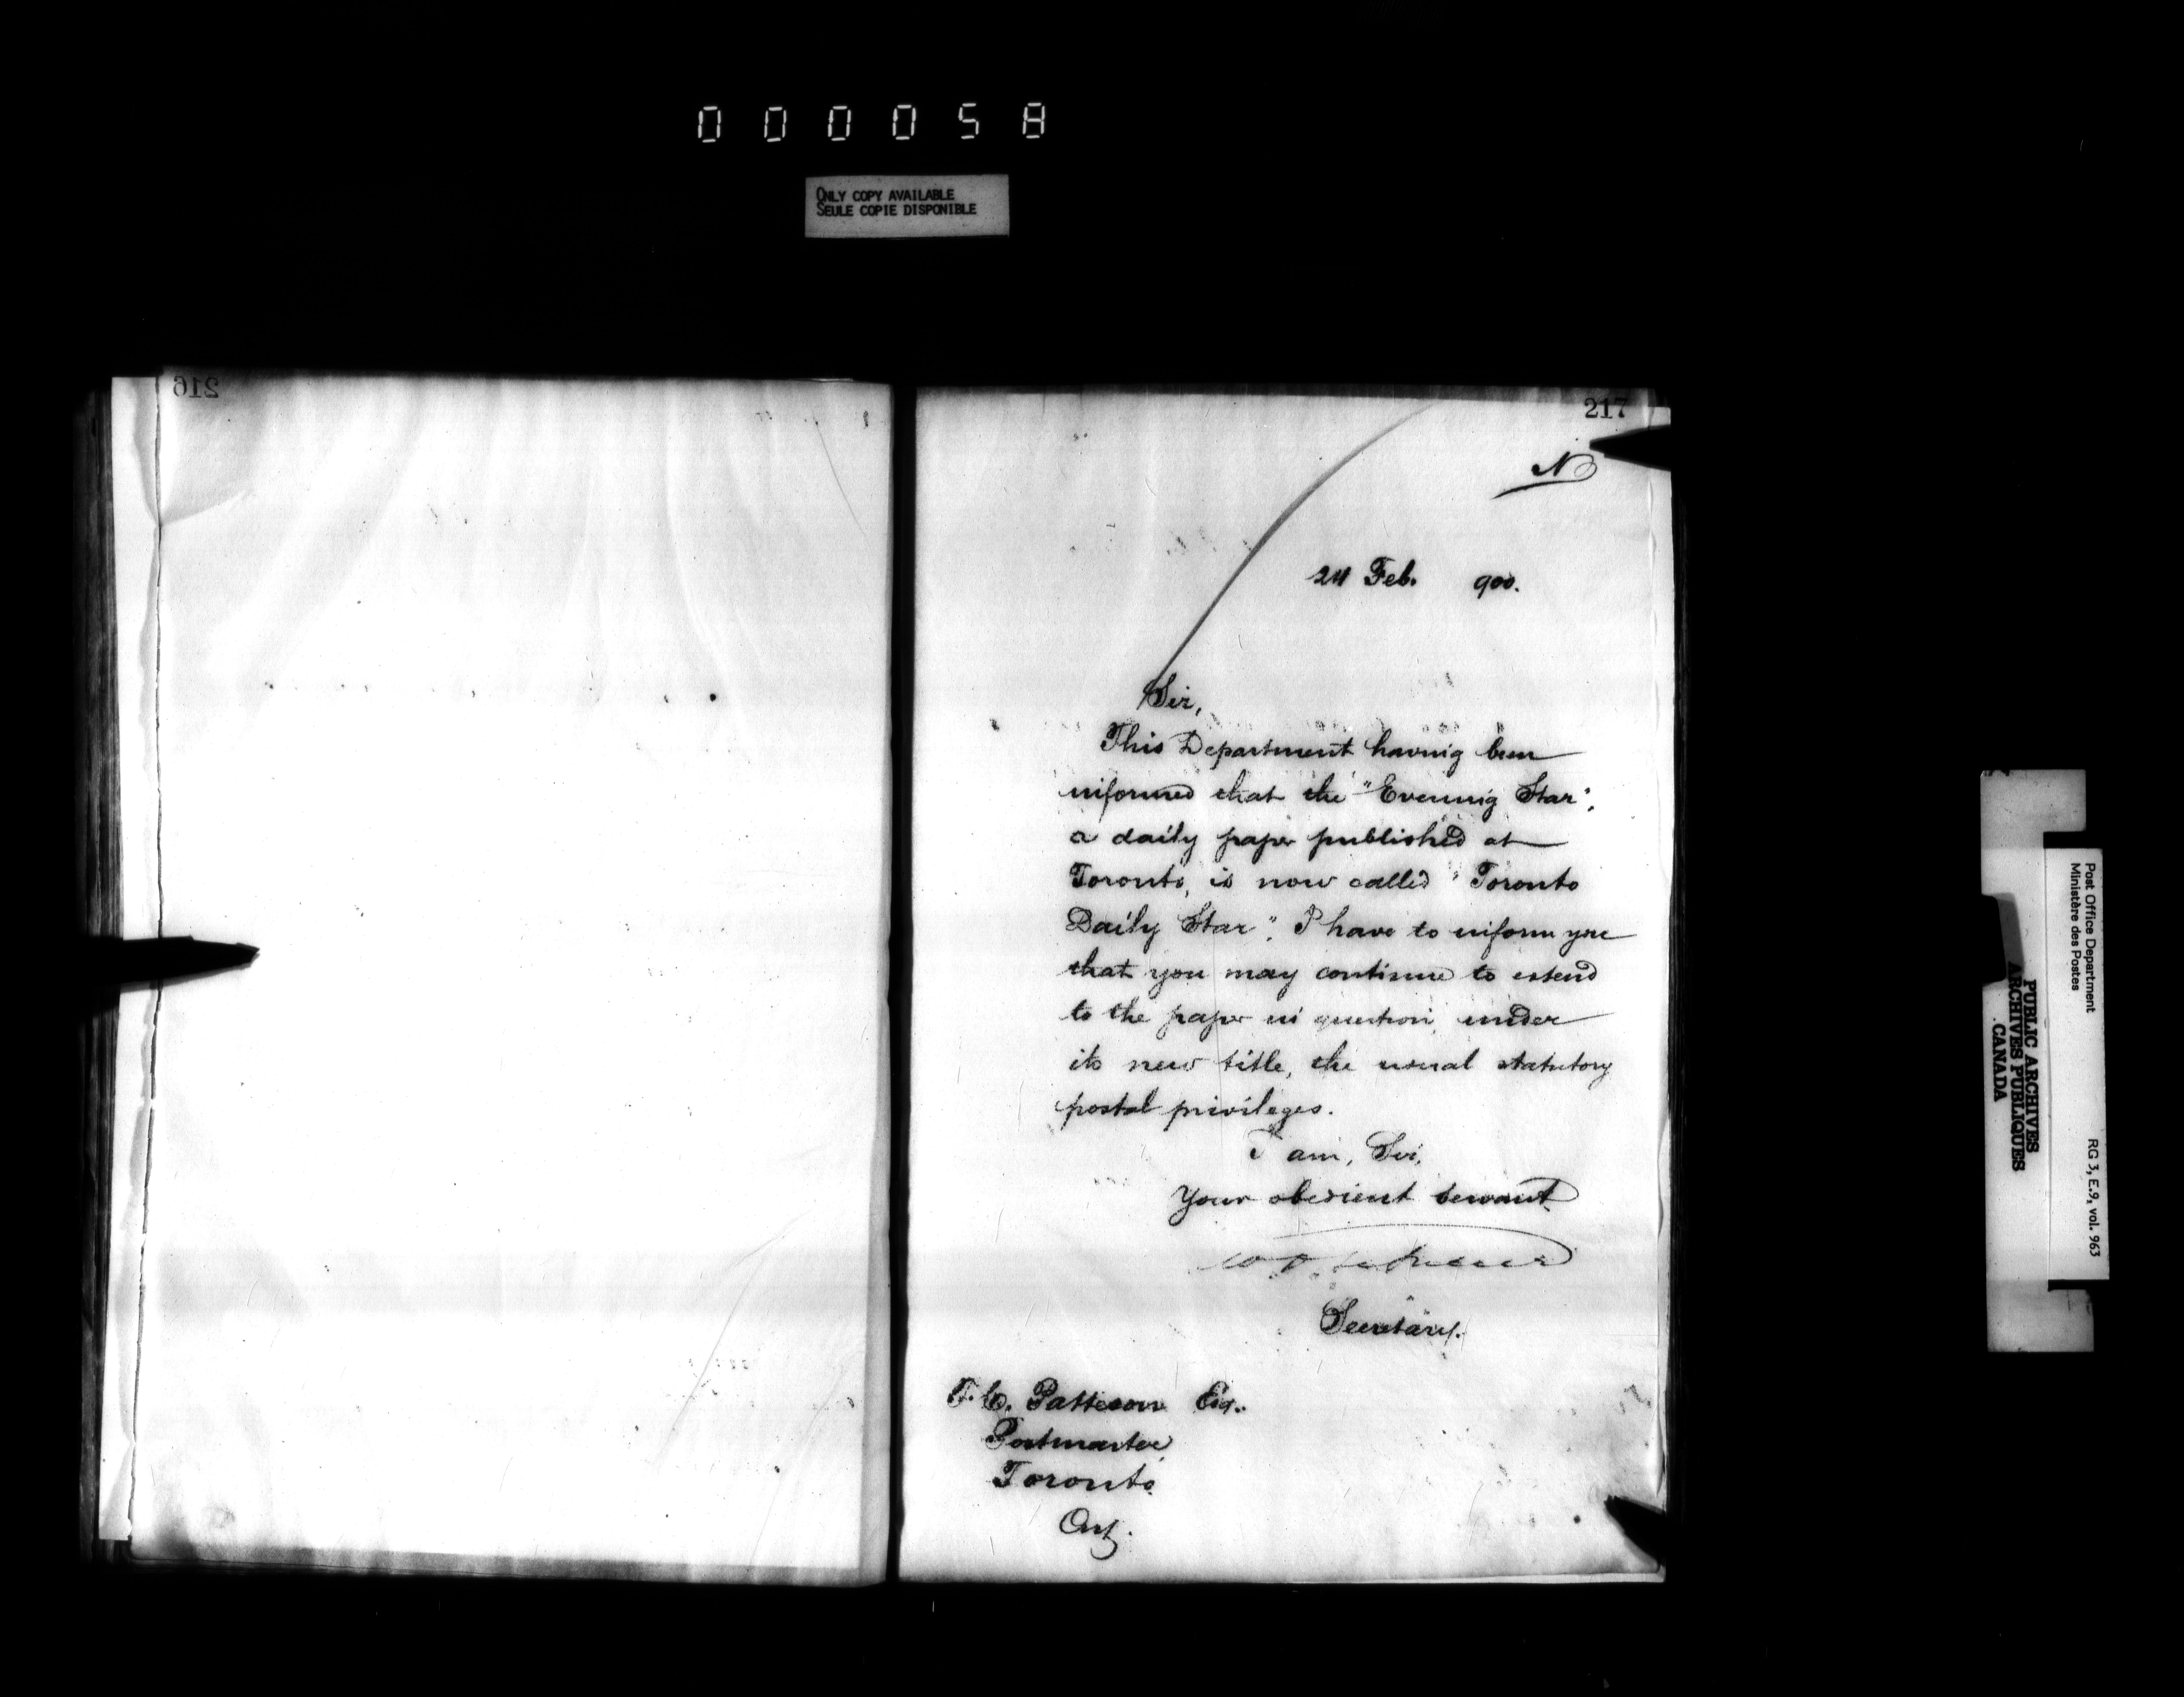 000058
ONLY COPY AVAILABLE
SEULE COPIE DISPONIBLE
216
217
N
24 Feb. 900.
Sir,
This Department having been
informed that the "Evening Star",
a daily paper published at
Toronto, is now called "Toronto
Daily Star". I have to inform you
that you may continue to extend
to the paper in question, under
its new title, the usual statutory
postal privileges.
I am, Sir,
Your obedient servant.
Secretary.
T. C. Patteson Esq.
Postmaster,
Toronto.
Ont.
Post Office Department
Ministère des Postes
RG 3, E.9, vol. 963
PUBLIC ARCHIVES
ARCHIVES PUBLIQUES
CANADA